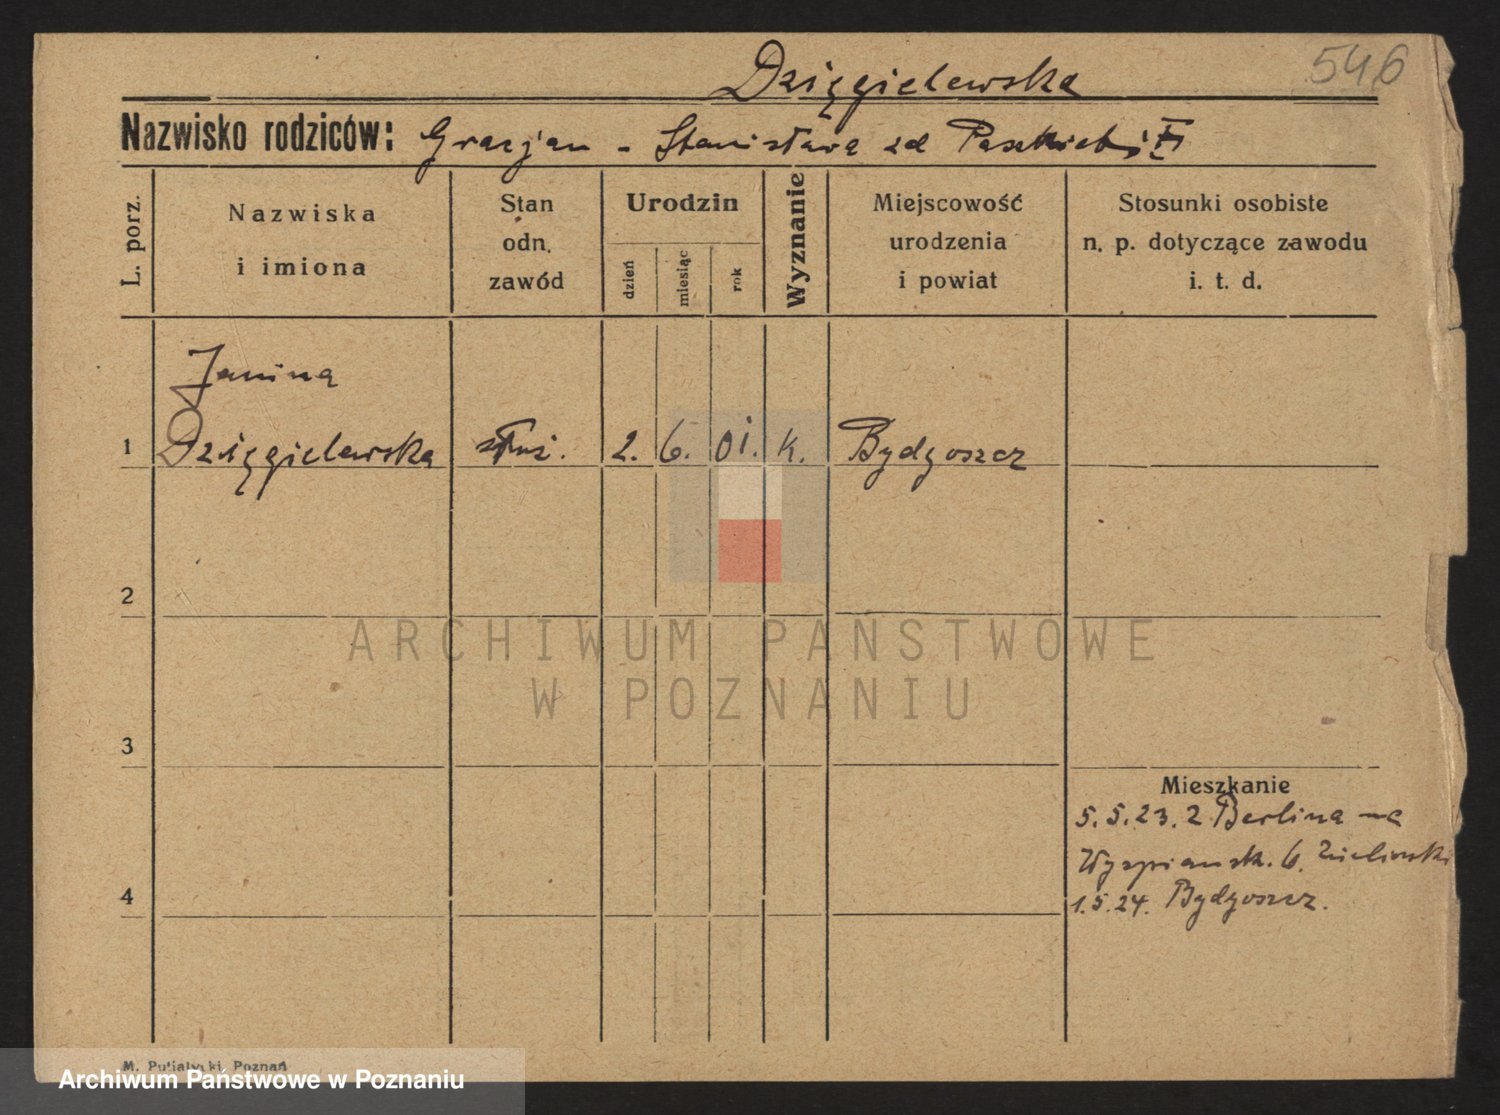 546
Dzięgielewska
Nazwisko rodziców: Gracjan - Stanisława zd
L. porz.
Nazwiska
i imiona
Stan
odn.
zawód
Urodzin
dzień
miesiąc
rok
Wyznanie
Miejscowość
urodzenia
i powiat
Stosunki osobiste
n. p. dotyczące zawodu
i. t. d.
Janina
1 Dzięgielewska służ. 2. 6. 01. k. Bydgoszcz
2
ARCHIWUM PAŃSTWOWE
W POZNANIU
3
Mieszkanie
5.5.23. z Berlina na
Wyspiańsk. 6. Zieliński
4
1.5.24. Bydgoszcz.
M. Putiatycki, Poznań
Archiwum Państwowe w Poznaniu